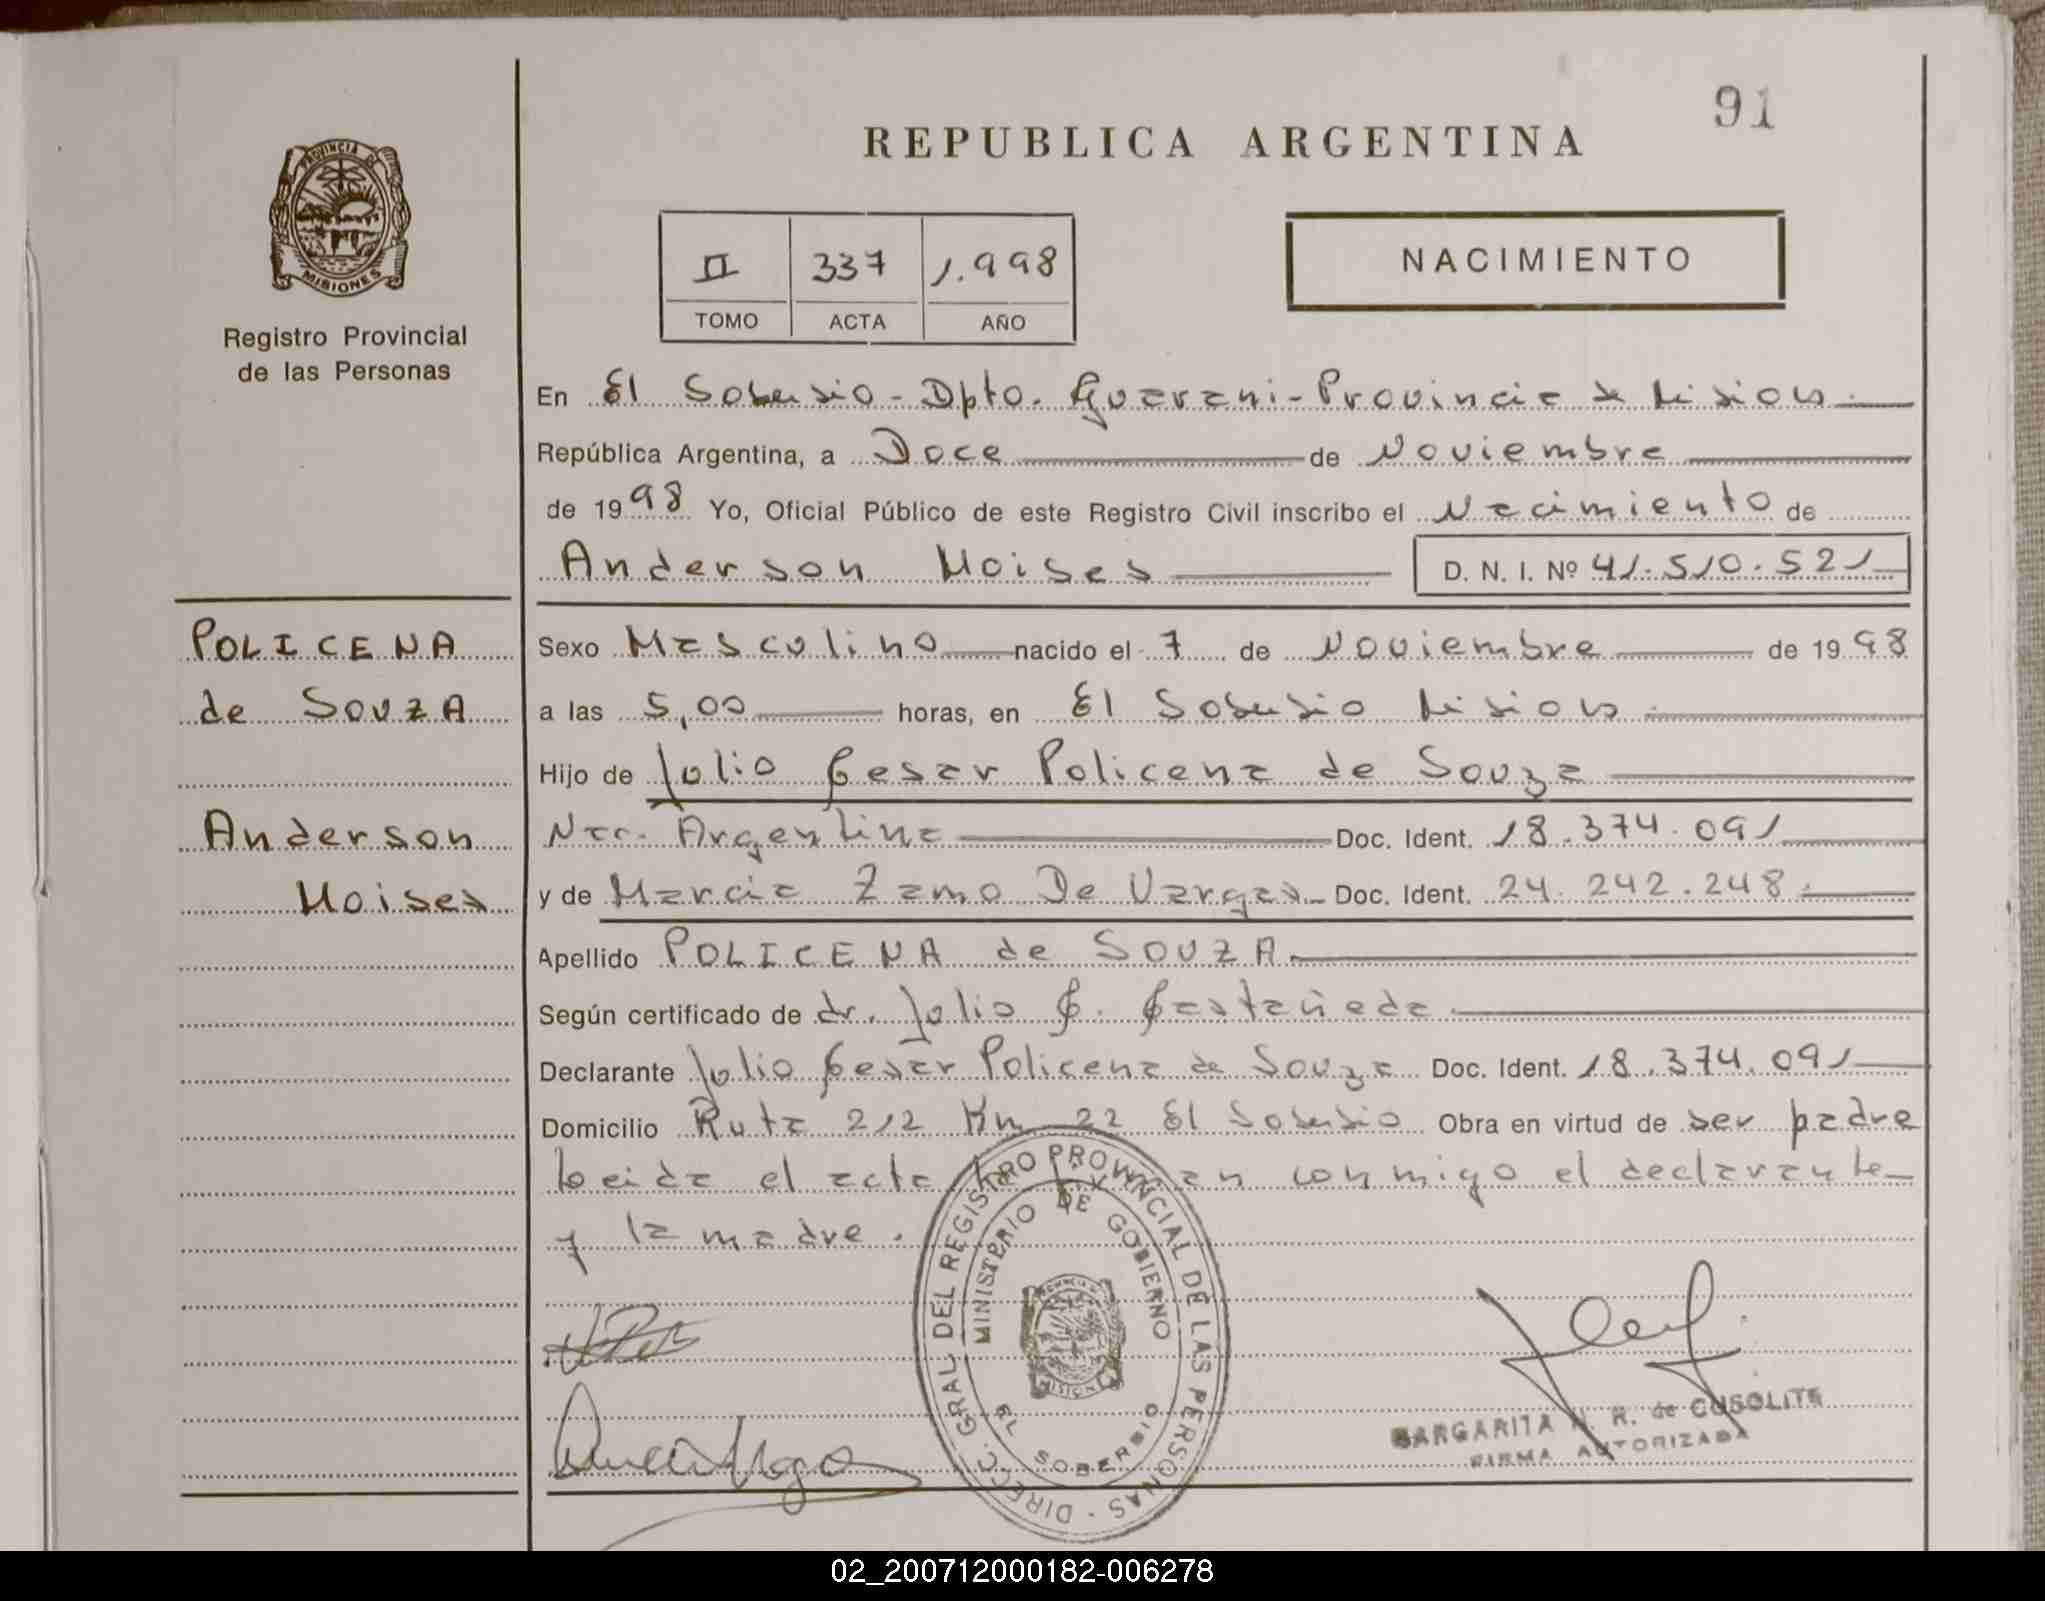 91
REPUBLICA ARGENTINA
PROVINCIA DE
MISIONES
Registro Provincial
de las Personas
II 337 1.998
TOMO ACTA AÑO
NACIMIENTO
En El Soberbio - Dpto. Guarani - Provincia de Misiones
República Argentina, a Doce de Noviembre
de 1998 Yo, Oficial Público de este Registro Civil inscribo el Nacimiento de
Anderson Moises D. N. I. Nº 41.510.521
POLICENA
de SOUZA
Anderson
Moises
Sexo Masculino nacido el 7 de Noviembre de 1998
a las 5,00 horas, en El Soberbio Misiones
Hijo de Julio Cesar Policena de Souza
Nac. Argentina Doc. Ident. 18.374.091
y de Marcia Zamo De Vargas Doc. Ident. 24.242.248
Apellido POLICENA de SOUZA
Según certificado de dr. Julio C. Castañeda
Declarante Julio Cesar Policena de Souza Doc. Ident. 18.374.091
Domicilio Ruta 212 Km 22 El Soberbio Obra en virtud de ser padre
Leida el acta conmigo el declarante
y la madre.
DIRECC. GRAL DEL REGISTRO PROVINCIAL DE LAS PERSONAS -
MINISTERIO DE GOBIERNO
EL SOBERBIO
MARGARITA R. de CUSOLITE
FIRMA AUTORIZADA
02_200712000182-006278